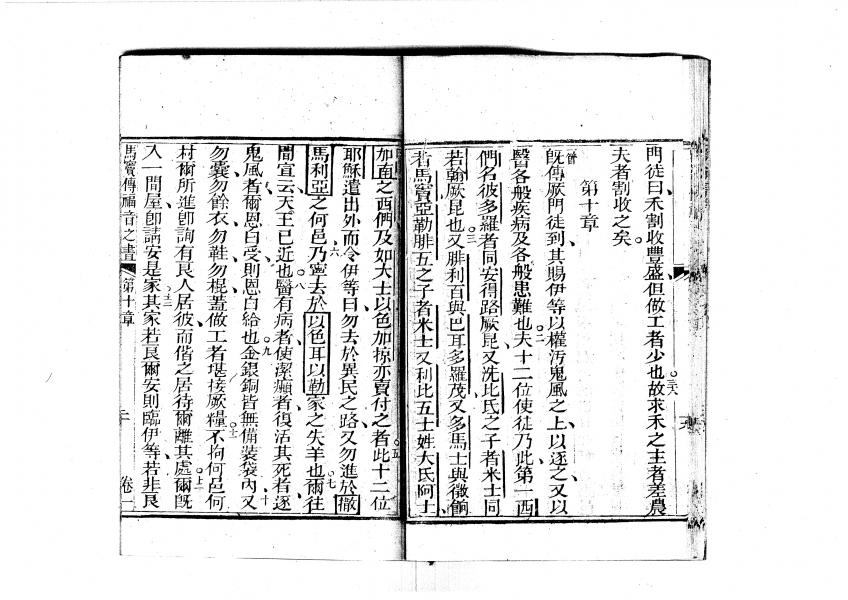 門徒曰禾割收豐盛但做工者少也故求禾之主者差農
夫者割收之矣
第十章
旣傳厥門徒到其賜伊等以權汚鬼風之上以逐之又以
醫各般疾病及各般患難也夫十二位使徒乃此第一西
們名彼多羅者同安得路厥昆又洗比氏之子者米士同
若翰厥昆也又腓利百與巴耳多羅茂又多馬士與徵餉
者馬竇亞勒腓五之子者米士又利比五士姓大氏阿士
加面之西們及如大士以色加掠亦賣付之者此十二位
耶穌遣出外而令伊等曰勿去於異民之路又勿進於撒
馬利亞之何邑乃寧去於以色耳以勒家之失羊也爾往
間宣云天王已近也醫有病者使潔癩者復活其死者逐
鬼風者爾恩白受則恩白給也金銀銅皆無備裝袋內又
勿囊勿餘衣勿鞋勿棍蓋做工者堪接厥糧不拘何邑何
村爾所進卽詢有良人居彼而偕之居待爾離其處爾旣
入一間屋卽請安是家其家若良爾安則臨伊等若非良
馬竇傳福音之書 第十章 二十 卷一